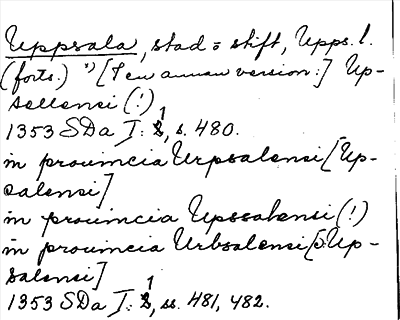 Uppsala, stad o stift, Upps. l.
(forts.) *) [I en annan version:] Up-
sellensi (!)
1353 SDa I: 1, s. 480.
in prouincia Urpsalensi [Up-
salensi]
in prouincia Upssalensi (!)
in prouincia Urbsalensi [o: Up-
salensi]
1353 SDa I: 1, ss. 481, 482.